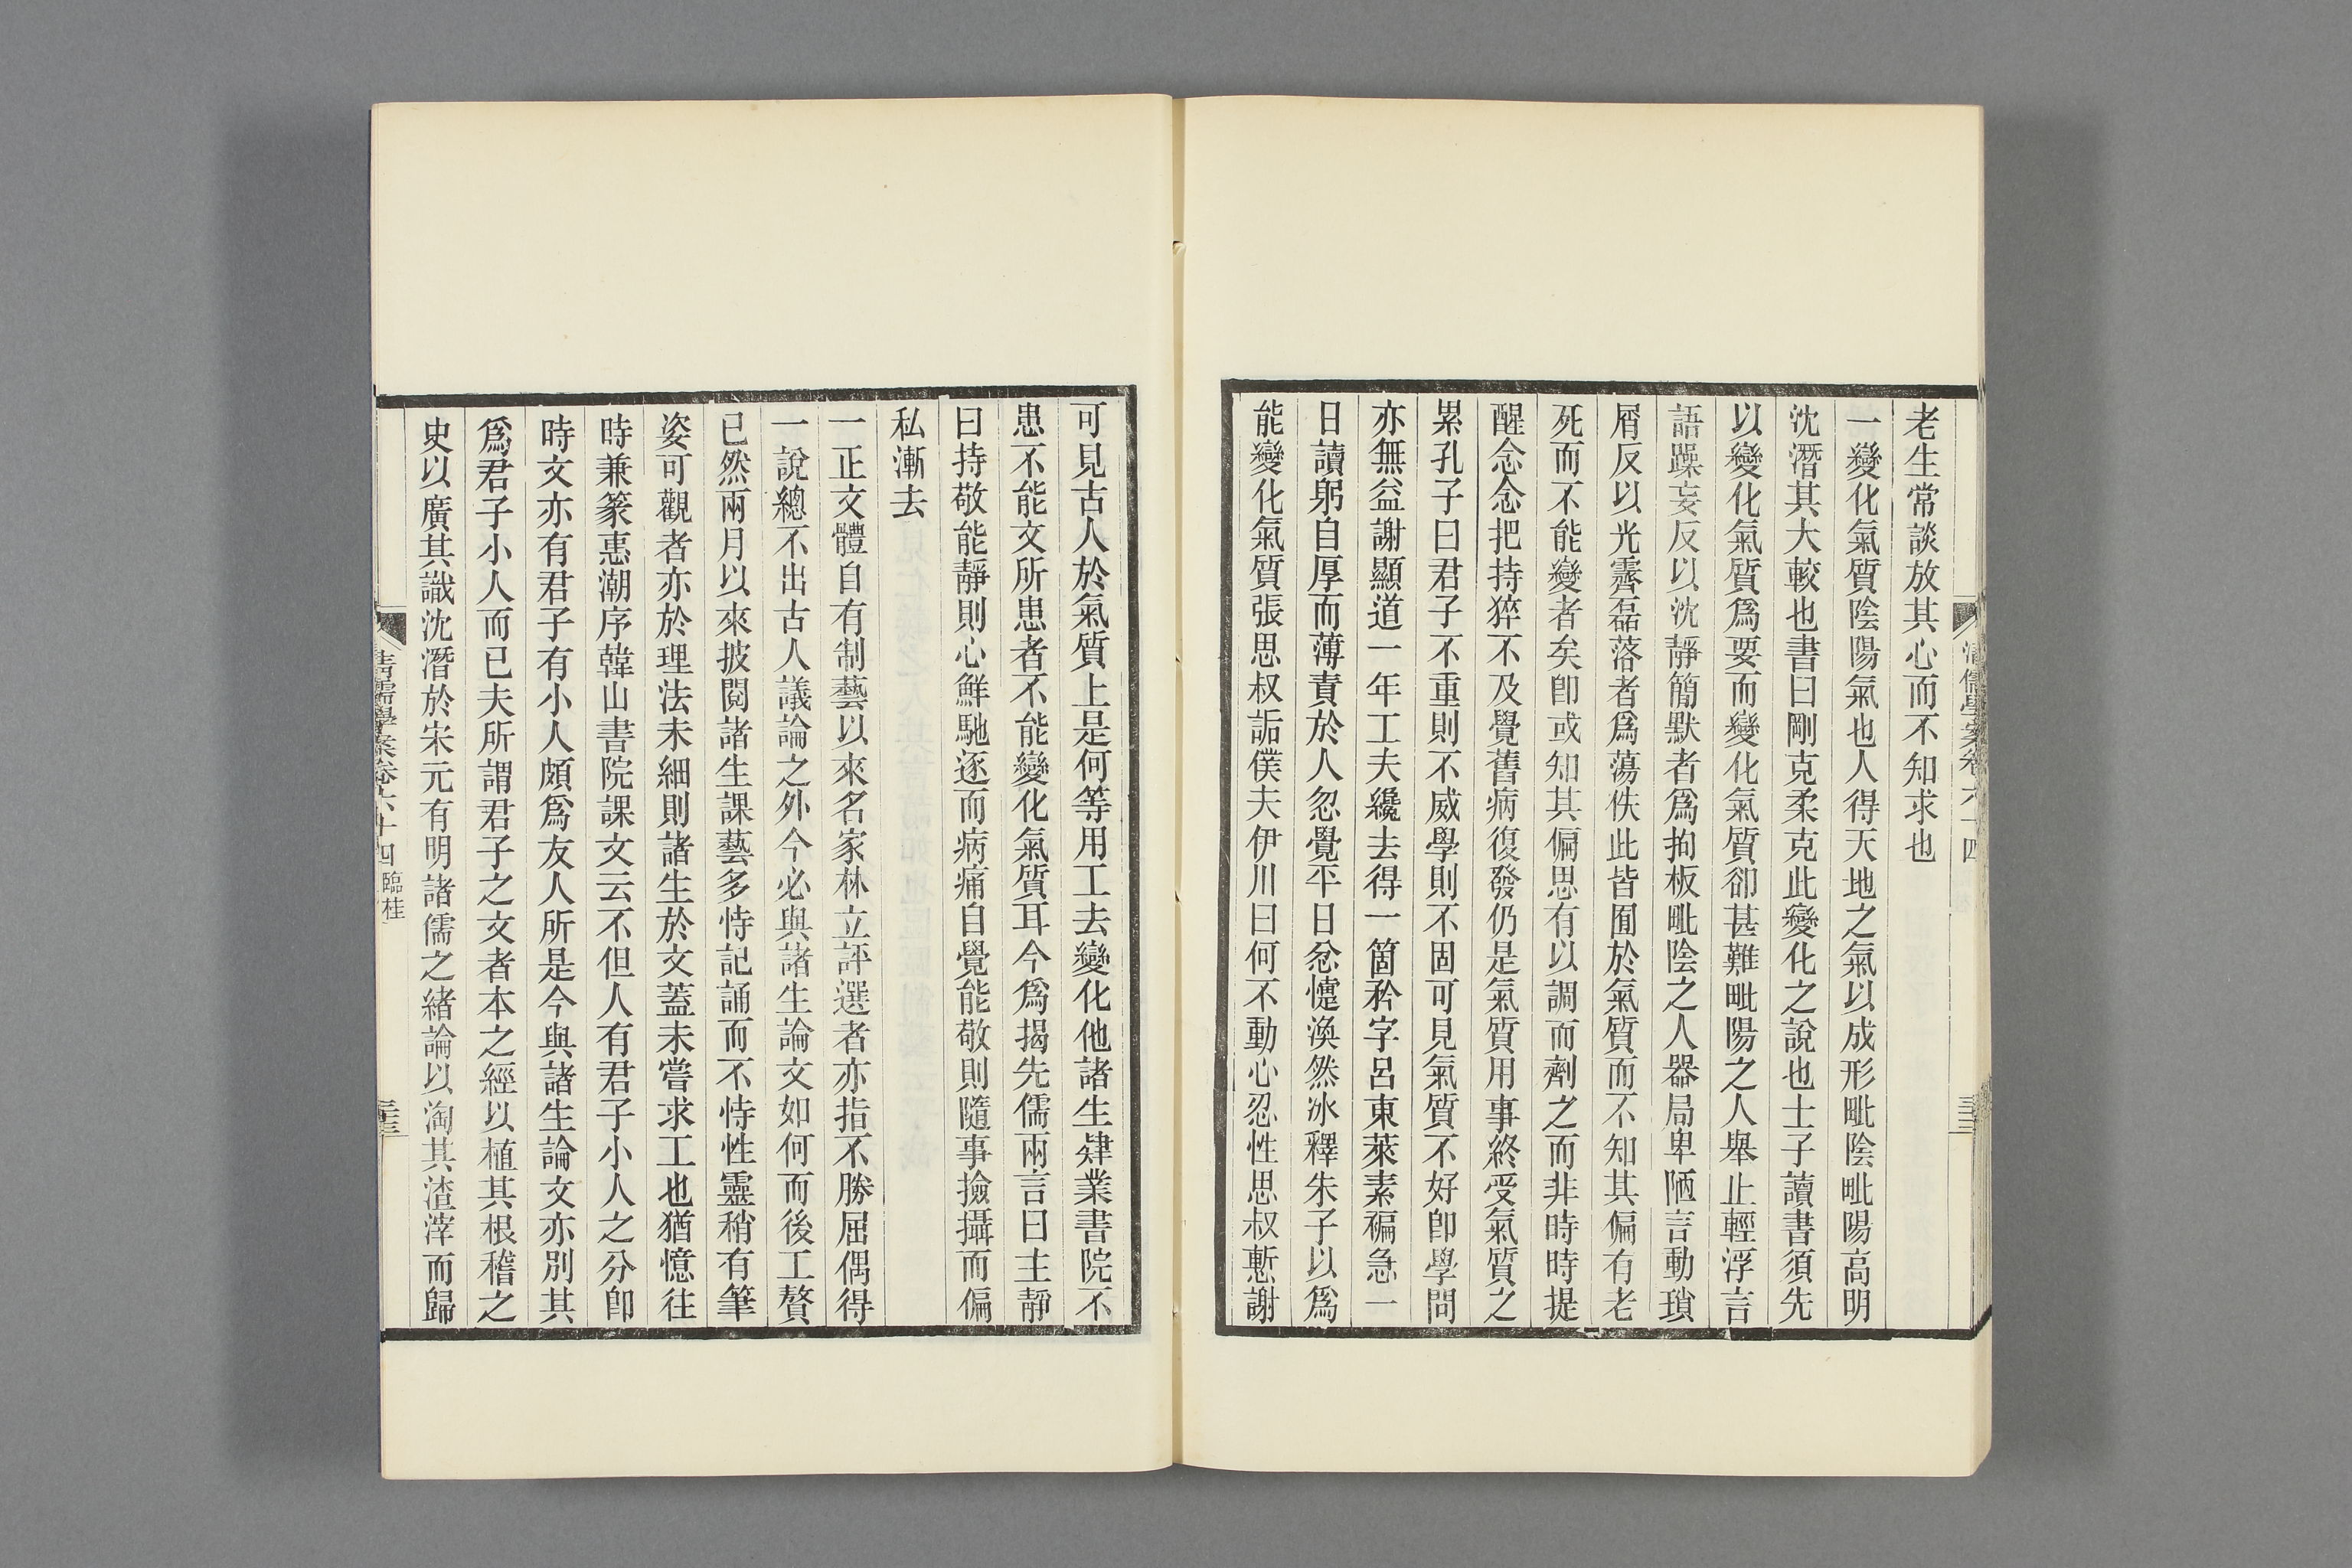 老生常談放其心而不知求也
一變化氣質陰陽氣也人得天地之氣以成形毗陰毗陽高明
沈潛其大較也書曰剛克柔克此變化之說也士子讀書須先
以變化氣質爲要而變化氣質卻甚難毗陽之人舉止輕浮言
語躁妄反以沈靜簡默者爲拘板毗陰之人器局卑陋言動瑣
屑反以光霽磊落者爲蕩佚此皆囿於氣質而不知其偏有老
死而不能變者矣卽或知其偏思有以調而劑之而非時時提
醒念念把持猝不及覺舊病復發仍是氣質用事終受氣質之
累孔子曰君子不重則不威學則不固可見氣質不好卽學問
亦無益謝顯道一年工夫纔去得一箇矜字呂東萊素褊急一
日讀躬自厚而薄責於人忽覺平日忿懥渙然冰釋朱子以爲
能變化氣質張思叔詬僕夫伊川曰何不動心忍性思叔慙謝
清儒學案卷六十四
三三
可見古人於氣質上是何等用工去變化他諸生肄業書院不
患不能文所患者不能變化氣質耳今爲揭先儒兩言曰主靜
曰持敬能靜則心鮮馳逐而病痛自覺能敬則隨事撿攝而偏
私漸去
一正文體自有制藝以來名家林立評選者亦指不勝屈偶得
一說總不出古人議論之外今必與諸生論文如何而後工贅
已然兩月以來披閱諸生課藝多恃記誦而不恃性靈稍有筆
姿可觀者亦於理法未細則諸生於文蓋未嘗求工也猶憶往
時兼篆惠潮序韓山書院課文云不但人有君子小人之分卽
時文亦有君子有小人頗爲友人所是今與諸生論文亦別其
爲君子小人而已夫所謂君子之文者本之經以植其根稽之
史以廣其識沈潛於宋元有明諸儒之緒論以淘其渣滓而歸
清儒學案卷六十四 臨桂
三三